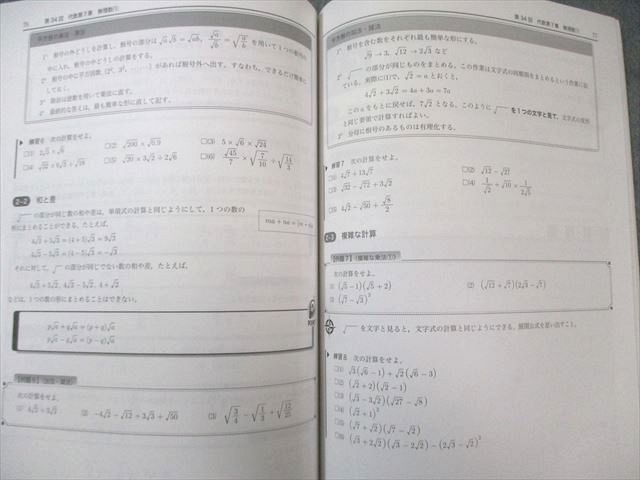 76 第34回 代数第7章 無理数①
1° 根号の外どうしを計算し，根号の部分は √a√b = √ab, √a/√b = √(a/b) を用いて1つの根号の
中に入れ，根号の中どうしを計算する。
2° 根号の中に平方因数（2², 3², ……）があれば根号外へ出す。すなわち，できるだけ簡単に
しておく。
3° 除法は逆数を用いて乗法に直す。
4° 最終的な答えは，最も簡単な形に直して記す。
練習6 次の計算をせよ。
□(1) 2√5 × √6
□(2) √200 × √0.9
□(3) 5 × √6 × √24
2-2 和と差
√ の部分が同じ数の和や差は，単項式の計算と同じようにして，1つの数の
形にまとめることができる。たとえば，
4√3 + 5√3 = (4+5)√3 = 9√3
4√3 − 5√3 = (4−5)√3 = −√3
それに対して，√ の部分が同じでない数の和や差，たとえば，
4√3 + 5√2, 4√3 − 5√2, 4 + √2
などは，1つの数の形にまとめることはできない。
POINT
p√a + q√a = (p+q)√a
p√a − q√a = (p−q)√a
次の計算をせよ。
(2) −4√2 − √12 + 3√3 + √50
(3) √(3/4) − √(1/3) + √(12/25)
第34回 代数第7章 無理数① 77
1° 根号を含む数をそれぞれ最も簡単な形にする。
√9 → 3, √12 → 2√3 など
2° √ の部分が同じものをまとめる。この作業は文字式の同類項をまとめるという作業に似
ている。実際に(1)で，√2 = a とおくと，
4√2 + 3√2 = 4a + 3a = 7a
この a をもとに戻せば，7√2 となる。このように √ を1つの文字と見て，文字式の変形
と同じ要領で計算すればよい。
3° 分母に根号のあるものは有理化する。
練習7 次の計算をせよ。
□(1) 4√7 + 13√7
□(2) √12 − √27
□(3) √32 − √72 + 3√2
□(4) 1/√2 + √10 × 1/(2√5)
□(5) 4√2 − √50 + √8/2
2-3 複雑な計算
【例題7】《複雑な乗法①》
次の計算をせよ。
(1) (√5−1)(√5+2)
(2) (√12+√7)(2√3−√7)
(3) (√7−√3)²
√ を文字と見ると，文字式の計算と同じようにできる。展開公式を思い出すこと。
練習8 次の計算をせよ。
□(1) √3(√6−1)+√2(√6−3)
□(2) (√2+2)(√2−1)
□(3) (√3−3√2)(√27−√8)
□(4) (√2+1)²
□(5) (√7+√2)(√7−√2)
□(6) (√3+2√2)(√3−2√2)−(2√3−√2)²